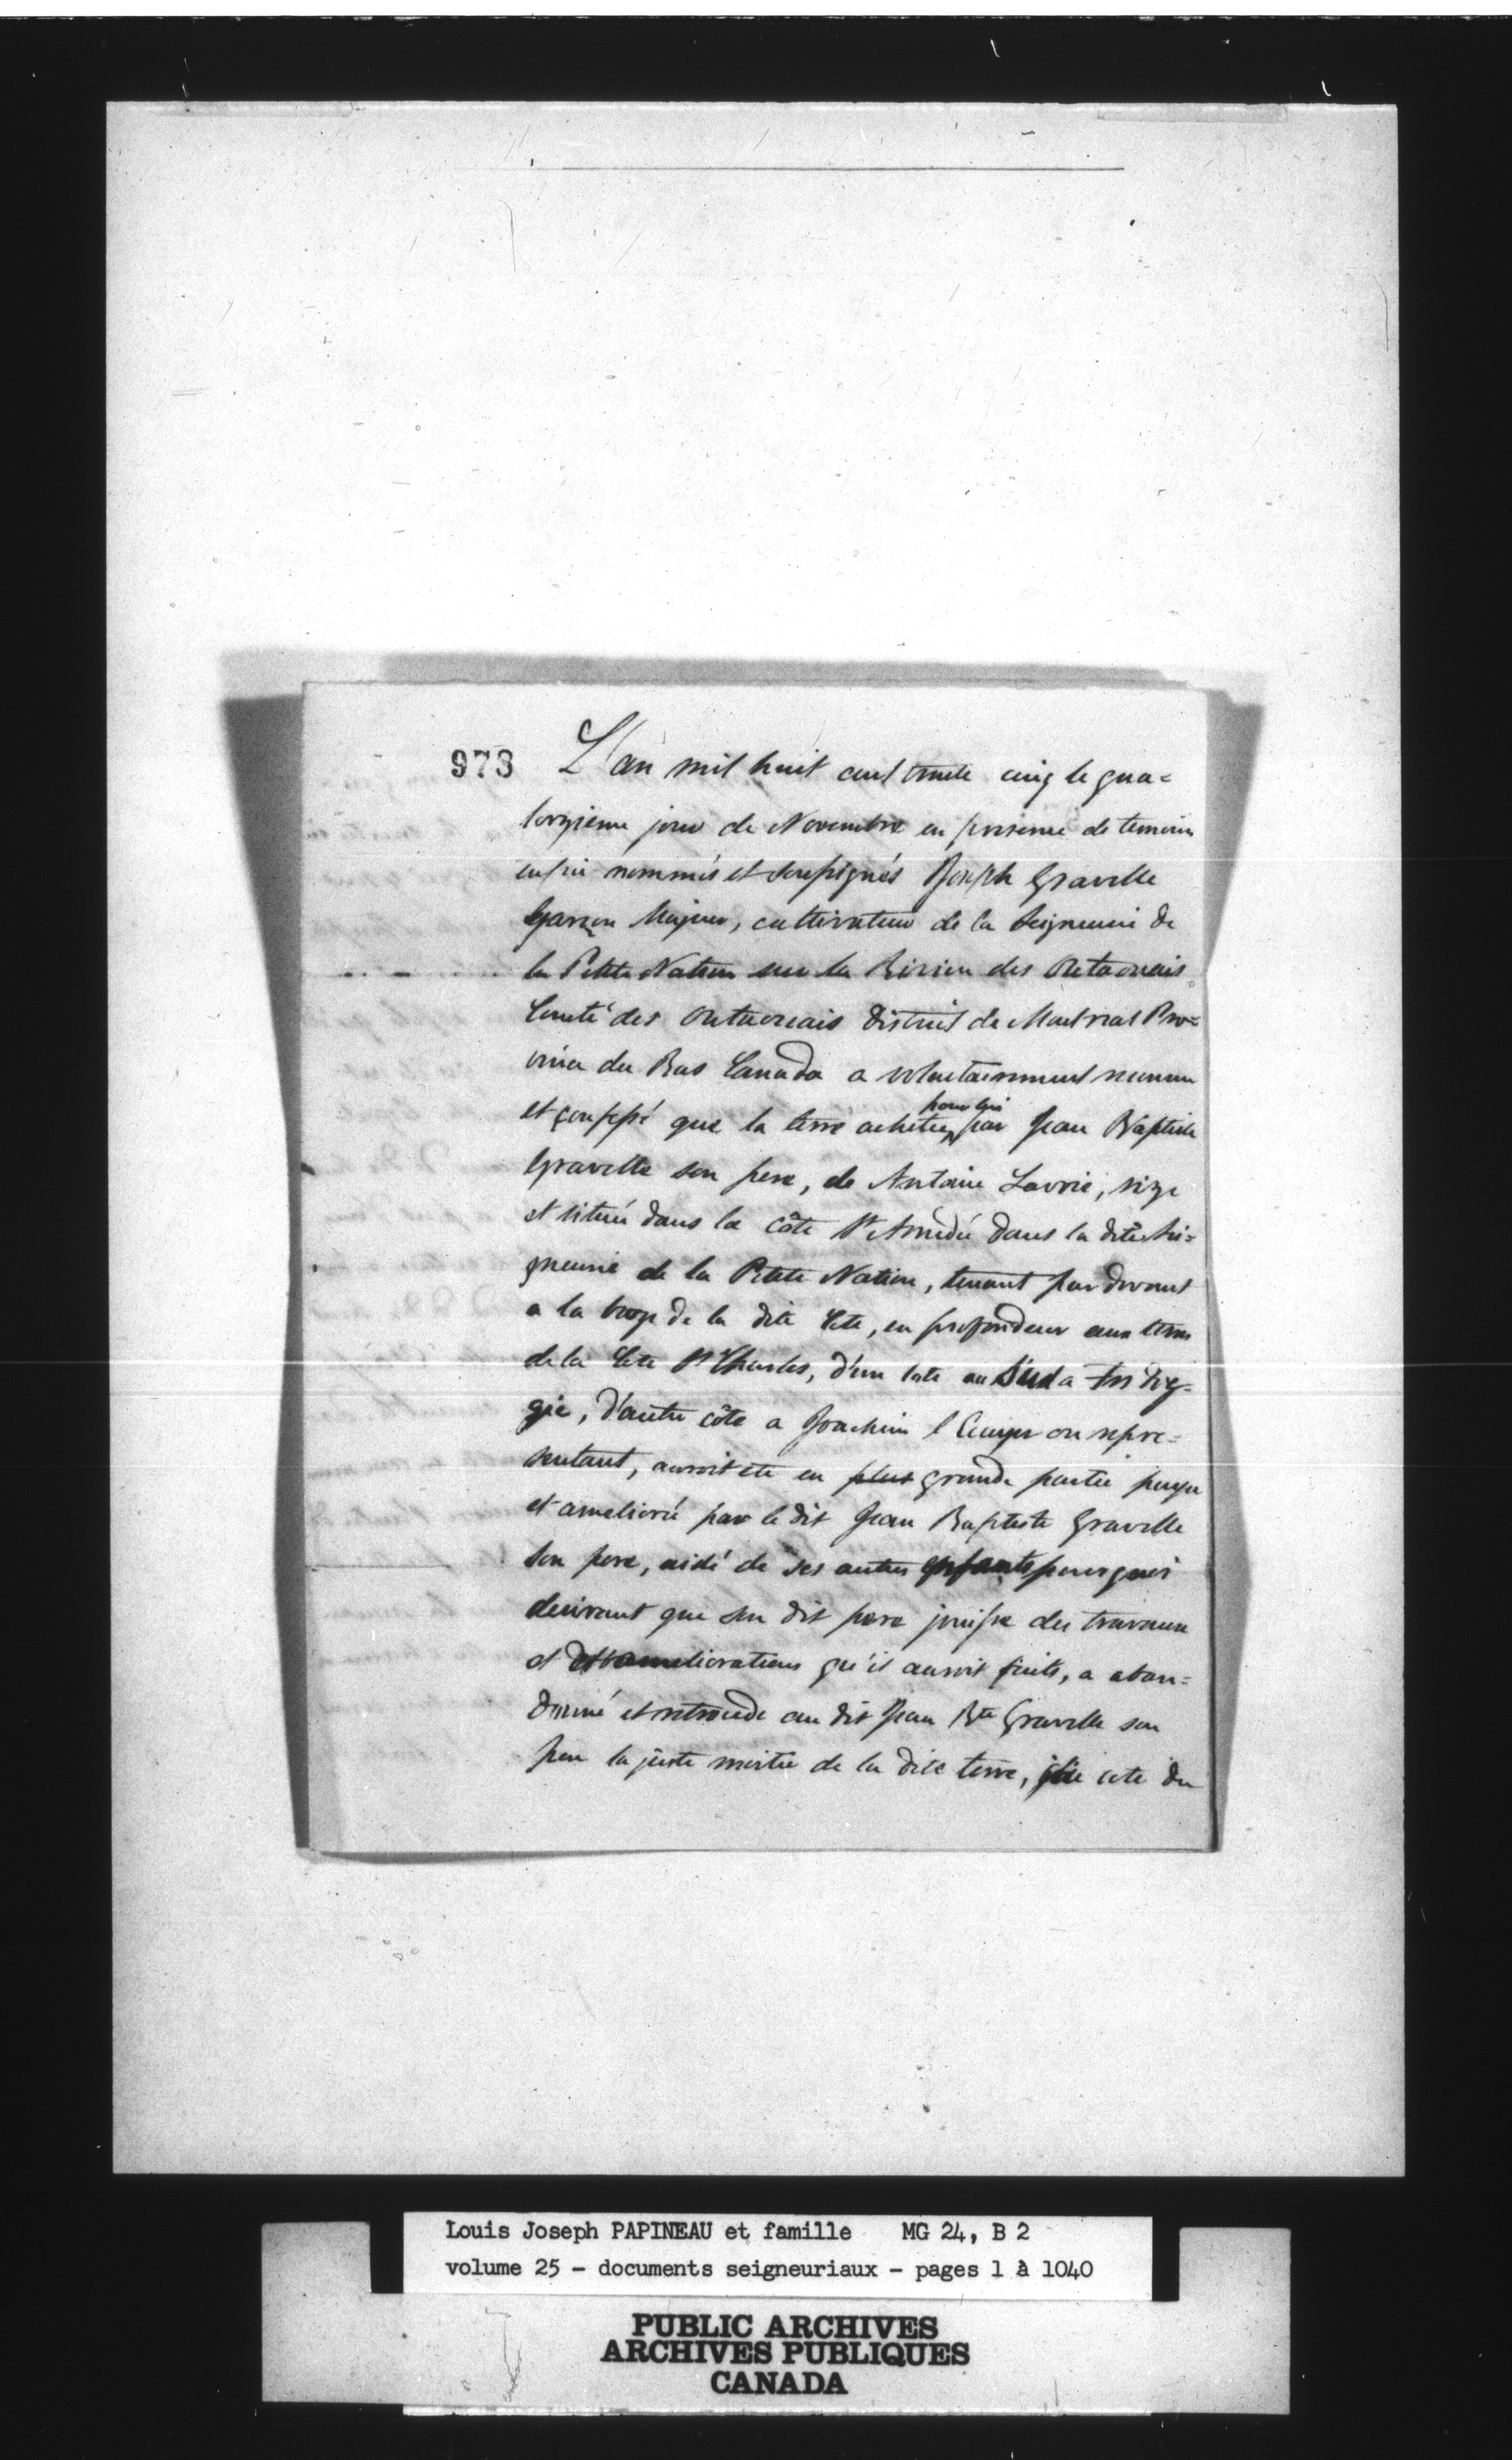 973 L'an mil huit cent trente cinq le qua=
torzieme jour de Novembre en presence de temoins
enfin nommés et soussignés Joseph Gravelle
Garçon Majeur, cultivateur de la Seigneurie de
la Petite Nation sur la Riviere des Outaouais
Comté des Outaouais District de Montreal Pro=
vince du Bas Canada a volontairement reconnu
et confessé que la terre achetée pour lui par Jean Baptiste
Gravelle son pere, de Antoine Lavoie, size
et située dans la côte St Amédée dans la dite Sei=
gneurie de la Petite Nation, tenant par devant
a la de la dite Cote, en profondeur aux terres
de la Cote St Charles, d'un coté au Sud a
d'autre côté a Joachim ou repre=
sentant, auroit ete en plus grande partie payée
et ameliorée par le dit Jean Baptiste Gravelle
son pere, aidé de ses autres enfants pourquoi
desirant que son dit pere jouisse des travaux
et ameliorations qu'il auroit faits, a aban=
donné et retrocede au dit Jean Bte Gravelle son
pere la juste moitié de la dite terre, cote du
Louis Joseph PAPINEAU et famille MG 24, B 2
volume 25 - documents seigneuriaux - pages 1 à 1040
PUBLIC ARCHIVES
ARCHIVES PUBLIQUES
CANADA